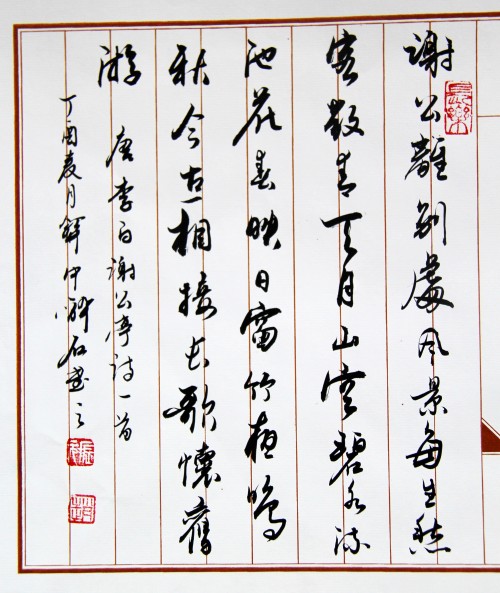 謝公離別處风景每生愁
客散青天月山空碧水流
池花春映日窗竹夜鳴
秋今古一相接长歌懷舊
游 唐李白謝公亭詩一首
丁酉夏月 石書之